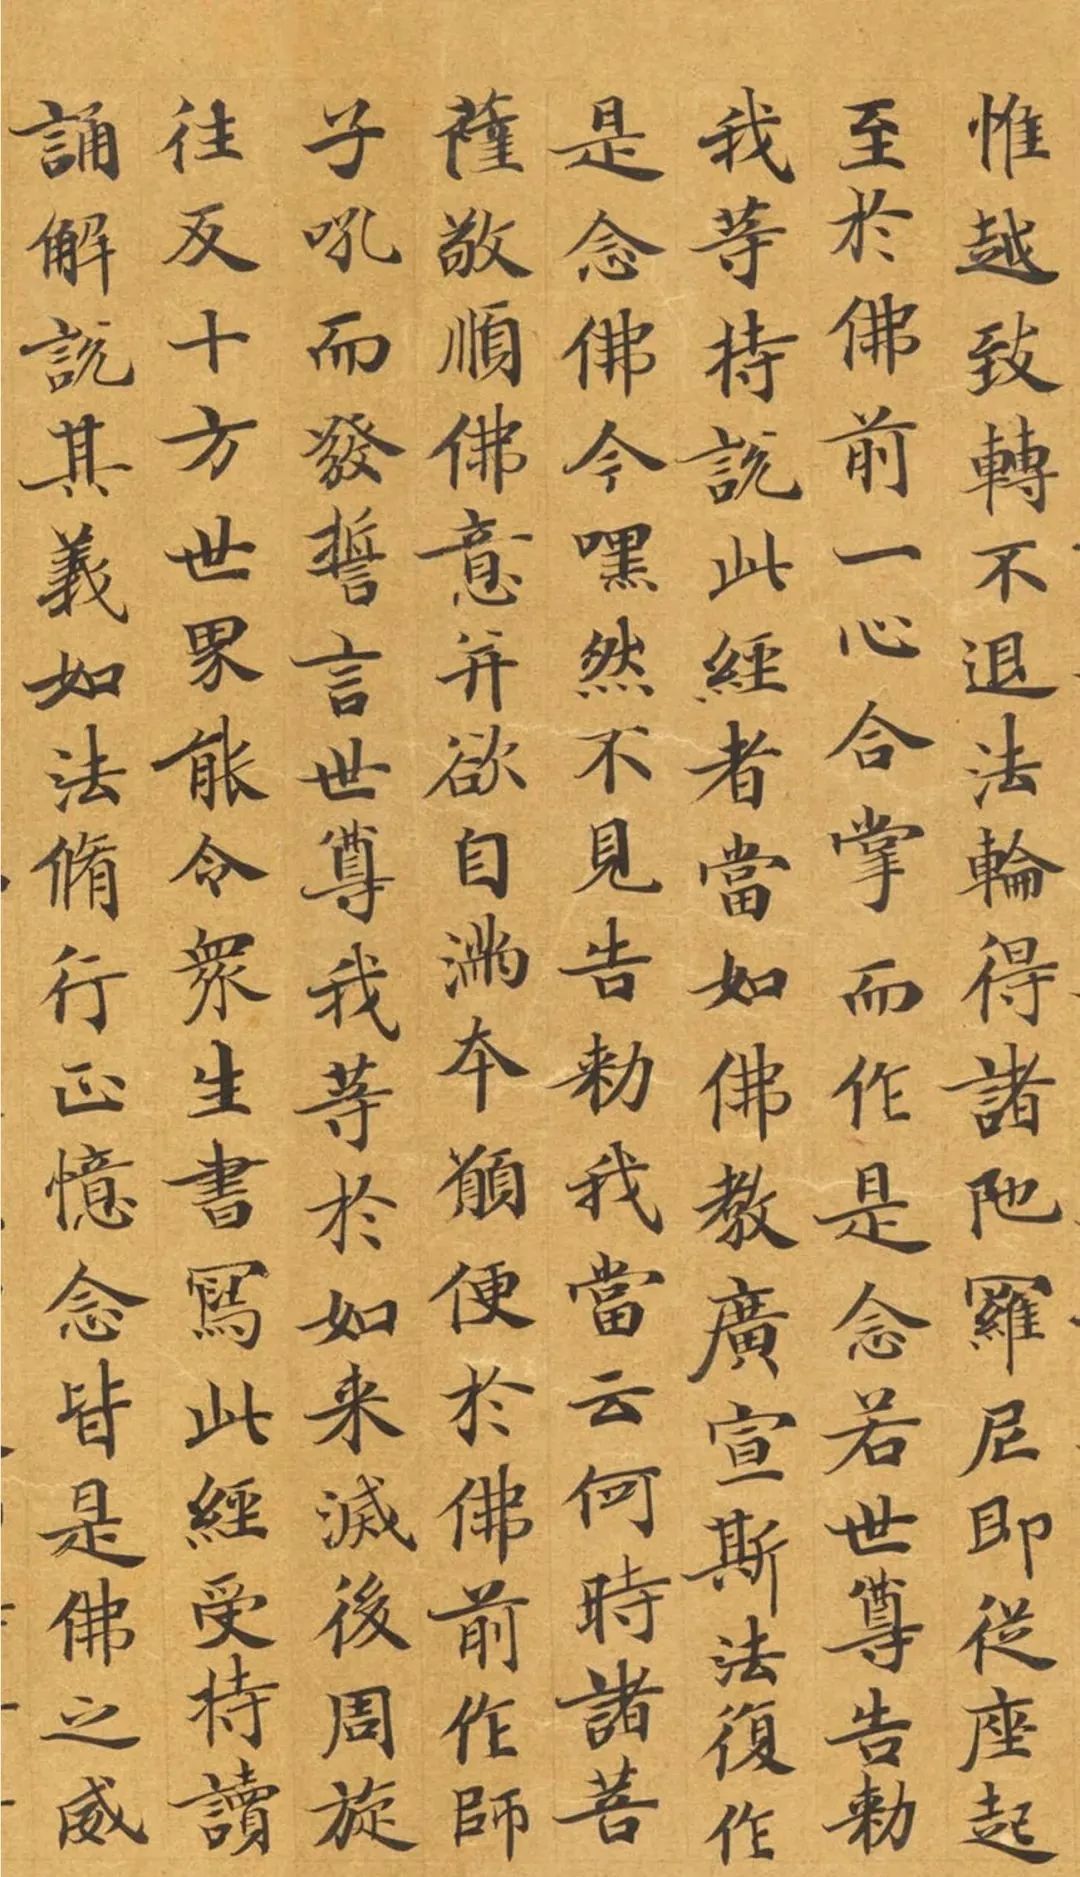 惟越致轉不退法輪得諸陁羅尼即從座起
至於佛前一心合掌而作是念若世尊告勑
我等持說此經者當如佛教廣宣斯法復作
是念佛今嘿然不見告勑我當云何時諸菩
薩敬順佛意并欲自滿本願便於佛前作師
子吼而發誓言世尊我等於如来滅後周旋
往反十方世界能令眾生書寫此經受持讀
誦解說其義如法脩行正憶念皆是佛之威